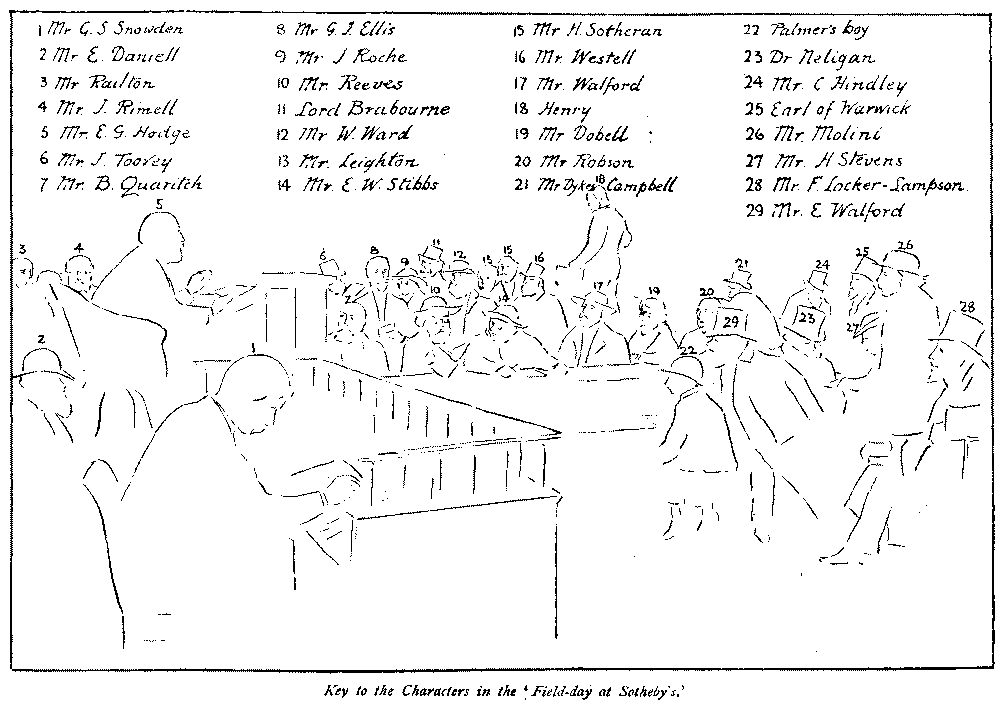 1 Mr G. S Snowden
2 Mr E. Daniell
3 Mr Railton
4 Mr J. Rimell
5 Mr. E. G. Hodge
6 Mr J. Toovey
7 Mr. B. Quaritch
8 Mr G. I. Ellis
9 Mr. J Roche
10 Mr. Reeves
11 Lord Brabourne
12 Mr W. Ward
13 Mr. Leighton
14 Mr. E. W. Stibbs
15 Mr H. Sotheran
16 Mr. Westell
17 Mr. Walford
18 Henry
19 Mr Dobell
20 Mr Robson
21 Mr Dykes Campbell
22 Palmer's boy
23 Dr Neligan
24 Mr. C Hindley
25 Earl of Warwick
26 Mr. Molini
27 Mr. H Stevens
28 Mr. F. Locker-Lampson.
29 Mr. E Walford
18
5
3 4 6 8 9 11 12 13 15 16 21 24 25 26
7 10 14 17 19 20 29 23 27 28
2 1 22
Key to the Characters in the 'Field-day at Sotheby's.'